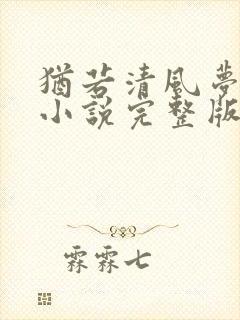 猶若清風夢
小說完整版
霖霖七